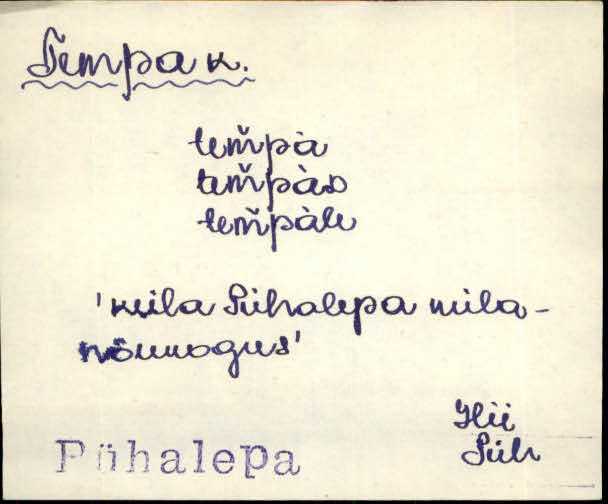 Tempa k.
tem̆pà
tem̆pàs
tem̆pàle
'küla Pühalepa küla-
nõukogus'
Hii
Püh
Pühalepa